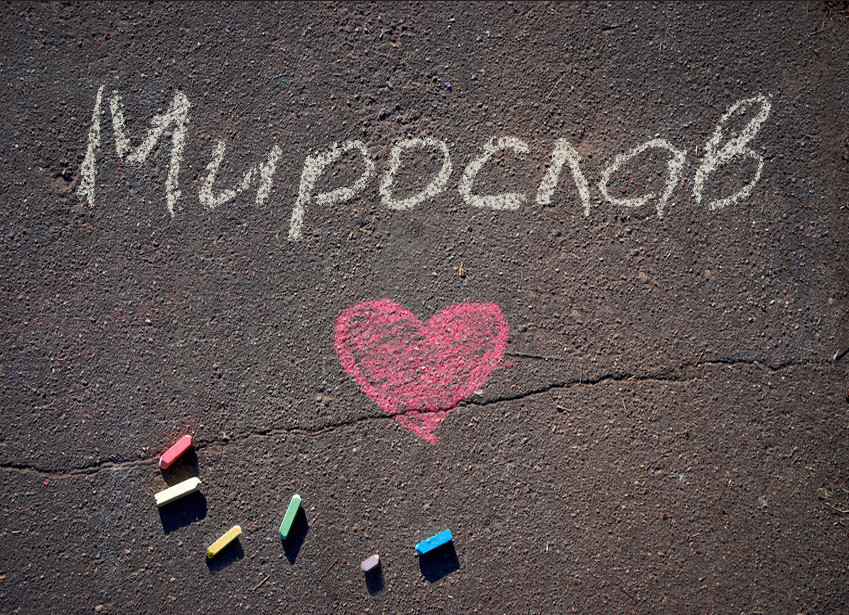 Мирослав